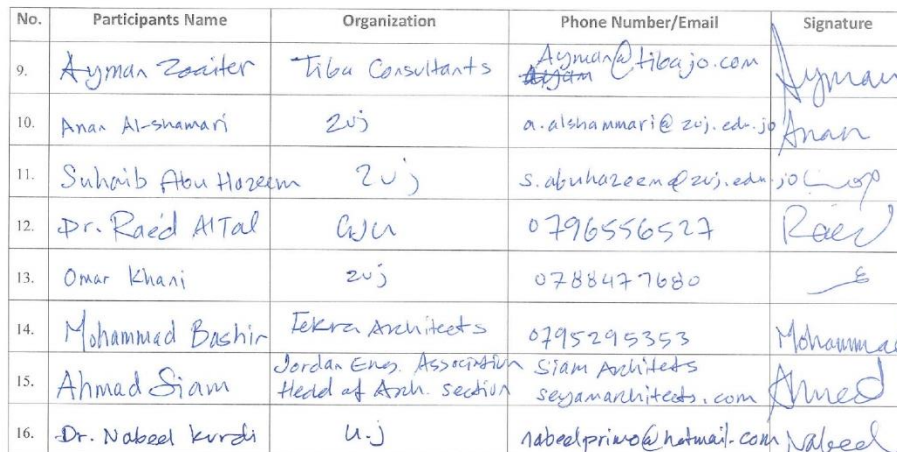 No. Participants Name Organization Phone Number/Email Signature
9. Ayman Zoaiter Tiba Consultants Ayman@tibajo.com Ayman
10. Anan Al-shamari zuj a.alshammari@zuj.edu.jo Anan
11. Suhaib Abu Hazeem zuj s.abuhazeem@zuj.edu.jo
12. Dr. Raed AlTal GJU 0796556527 Raed
13. Omar Khani zuj 0788477680
14. Mohammad Bashir Fekra Architects 0795295353 Mohammad
Jordan Eng. Association Siam Architects
15. Ahmad Siam Head of Arch. section seyamarchitects.com Ahmed
16. Dr. Nabeel Kurdi U.J nabeelprimo@hotmail.com Nabeel